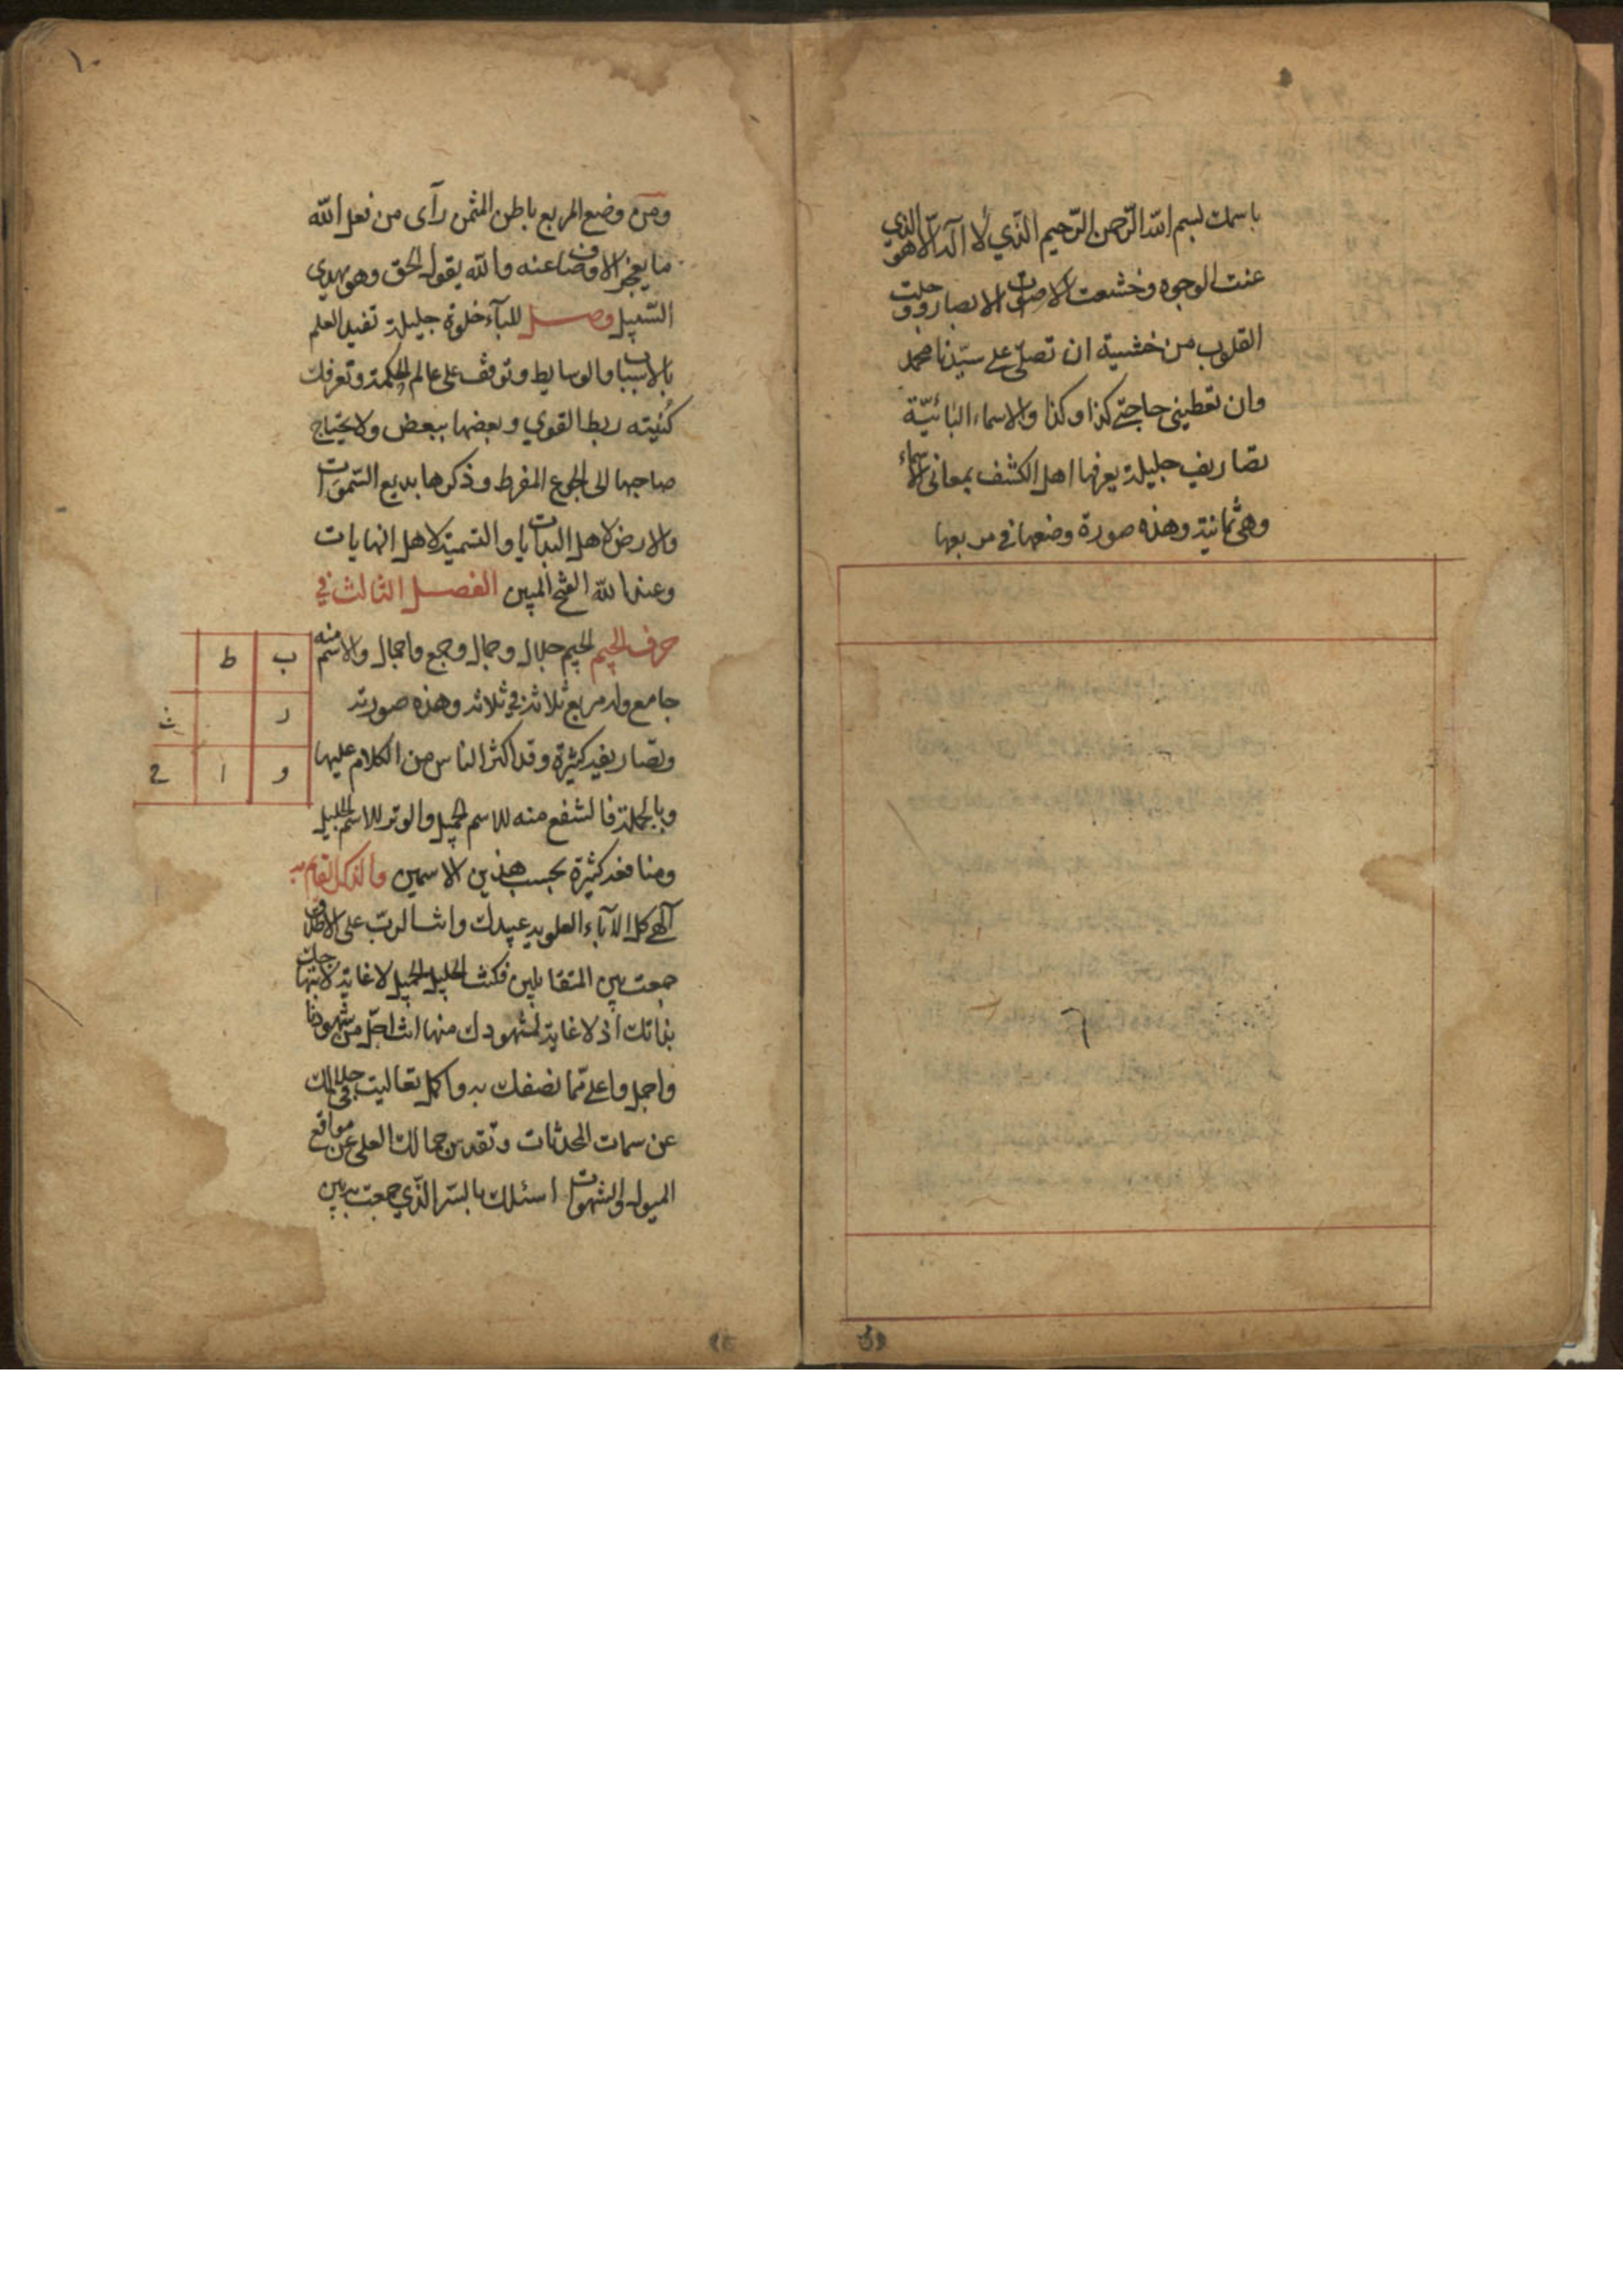 باسمك بسم الله الرّحمن الرّحيم الّذي لا اله الّا هو الذي
عنت الوجوه وخشعت الاصوات الابصار ووجلت
القلوب من خشيته ان تصلّى على سيّدنا محمد
وان تعطيني حاجتي كذا وكذا والاسماء البائيّة
تصاريف جليلة يعرفها اهل الكشف بمعاني الاسماء
وهي ثمانية وهذه صورة وضعها في مربعها
ومن وضع المربع باطن المثمن رآى من فعل الله
ما يعجز الاوصاف عنه والله يقول الحق وهو يهدي
السّبيل وصل للبآء خلوة جليلة تفيد العلم
بالاسباب والوسايط وتوقف على عالم الحكمة وتعرفك
كيفية ربط القوي وبعضها ببعض ولا يحتاج
صاحبها الى الجوع المفرط وذكرها بديع السّموات
والارض لاهل البدايات والتسمية لاهل النهايات
وعند الله الفتح المبين الفصل الثالث في
حرف الجيم الجيم جلال وجمال وجمع واجمال والاسم منه
جامع وله مربع ثلاثة في ثلاثه وهذه صورته
ب ط
د
و ا ح
وتصاريفه كثيرة وقد اكثر الناس من الكلام عليها
وبالجملة فالشفع منه للاسم الجميل والوتر للاسم الجليل
ومنافعه كثيرة بحسب هذين الاسمين والذكر القائم به
آلهي كل الآباء العلويه عبيدك وانت الربّ على الاطلاق
جمعت بين المتقابلين فكنت الجليل الجميل لا غاية لابتهاجك
بذاتك اذ لا غاية لشهودك منها انت اجلّ من شهودنا
واجمل واعلى ممّا نصفك به واكمل تعاليت في جلالك
عن سمات المحدثات وتقدس جمالك العلى عن مواقع
الميول والشهوات اسئلك بالسّر الّذي جمعت به بين